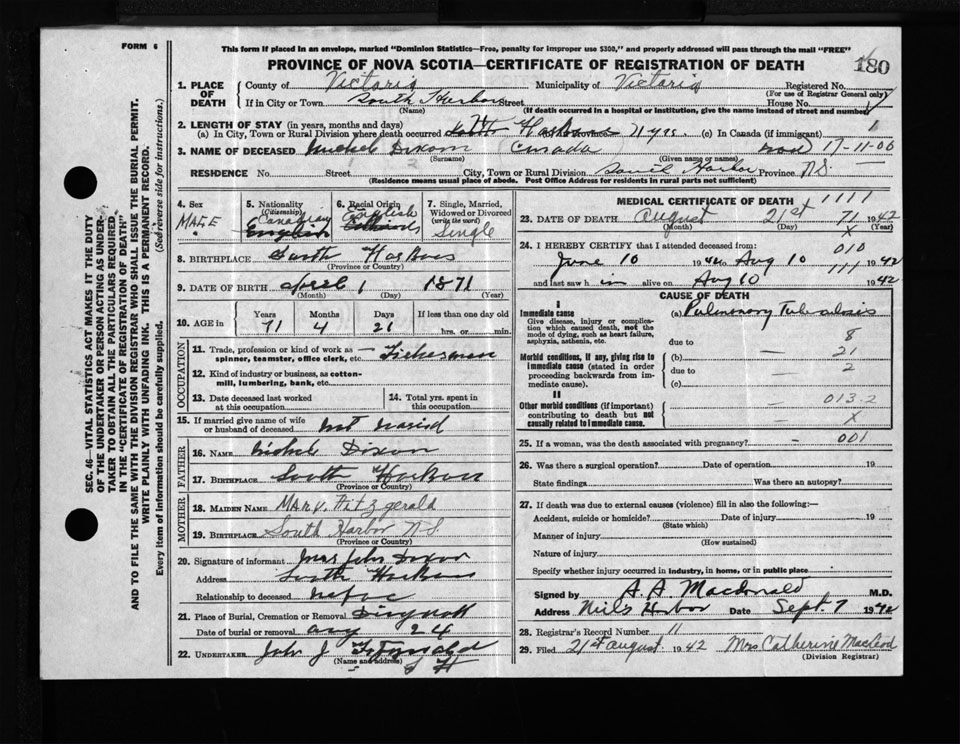 FORM 6
This form if placed in an envelope, marked "Dominion Statistics—Free, penalty for improper use $300," and properly addressed will pass through the mail "FREE"
PROVINCE OF NOVA SCOTIA—CERTIFICATE OF REGISTRATION OF DEATH
180
1. PLACE OF DEATH
County of Victoria Municipality of Victoria Registered No.
(For use of Registrar General only)
If in City or Town South Harbor Street House No.
(Name) (If death occurred in a hospital or institution, give the name instead of street and number)
2. LENGTH OF STAY (in years, months and days)
(a) In City, Town or Rural Division where death occurred 71 yrs (c) In Canada (if immigrant)
3. NAME OF DECEASED Dixon Canada 17-11-06
(Surname) (Given name or names)
RESIDENCE No. Street City, Town or Rural Division Harbor Province N.S.
(Residence means usual place of abode. Post Office Address for residents in rural parts not sufficient)
4. Sex
MALE
5. Nationality (Citizenship)
Canadian
English
6. Racial Origin
English
7. Single, Married, Widowed or Divorced (write the word)
Single
8. BIRTHPLACE South
(Province or Country)
9. DATE OF BIRTH April 1 1871
(Month) (Day) (Year)
10. AGE in
Years Months Days If less than one day old
71 4 21 hrs. or min.
OCCUPATION
11. Trade, profession or kind of work as spinner, teamster, office clerk, etc. — Fisherman
12. Kind of industry or business, as cotton-mill, lumbering, bank, etc.
13. Date deceased last worked at this occupation
14. Total yrs. spent in this occupation
15. If married give name of wife or husband of deceased not
FATHER
16. NAME Dixon
17. BIRTHPLACE South
(Province or Country)
MOTHER
18. MAIDEN NAME Mary. Fitzgerald
19. BIRTHPLACE South Harbor N.S.
(Province or Country)
20. Signature of informant Mrs John Dixon
Address South
Relationship to deceased
21. Place of Burial, Cremation or Removal
Date of burial or removal Aug 24
22. UNDERTAKER John J
(Name and address)
MEDICAL CERTIFICATE OF DEATH 1111
23. DATE OF DEATH August 21st 71 1942
(Month) (Day) X (Year)
24. I HEREBY CERTIFY that I attended deceased from: 010
June 10 1942 to Aug 10 111 1942
and last saw h im alive on Aug 10 1942
CAUSE OF DEATH
I
Immediate cause
Give disease, injury or complication which caused death, not the mode of dying, such as heart failure, asphyxia, asthenia, etc.
(a) Pulmonary Tuberculosis
due to — 8
Morbid conditions, if any, giving rise to immediate cause (stated in order proceeding backwards from immediate cause).
(b) — 21
due to — 2
(c)
II
Other morbid conditions (if important) contributing to death but not causally related to immediate cause.
— 013.2
— X
25. If a woman, was the death associated with pregnancy? - 001
26. Was there a surgical operation? Date of operation 19
State findings Was there an autopsy?
27. If death was due to external causes (violence) fill in also the following:
Accident, suicide or homicide? Date of injury 19
(State which)
Manner of injury
(How sustained)
Nature of injury
Specify whether injury occurred in industry, in home, or in public place
Signed by A. A. Macdonald M.D.
Address Date Sept. 7 1942
28. Registrar's Record Number 11
29. Filed 21st August 1942 Mrs Catherine MacLeod
(Division Registrar)
SEC. 46—VITAL STATISTICS ACT MAKES IT THE DUTY
OF THE UNDERTAKER OR PERSON ACTING AS UNDER-
TAKER TO OBTAIN ALL THE PARTICULARS REQUIRED
IN THE "CERTIFICATE OF REGISTRATION OF DEATH"
AND TO FILE THE SAME WITH THE DIVISION REGISTRAR WHO SHALL ISSUE THE BURIAL PERMIT.
WRITE PLAINLY WITH UNFADING INK. THIS IS A PERMANENT RECORD.
Every item of information should be carefully supplied. (See reverse side for instructions.)